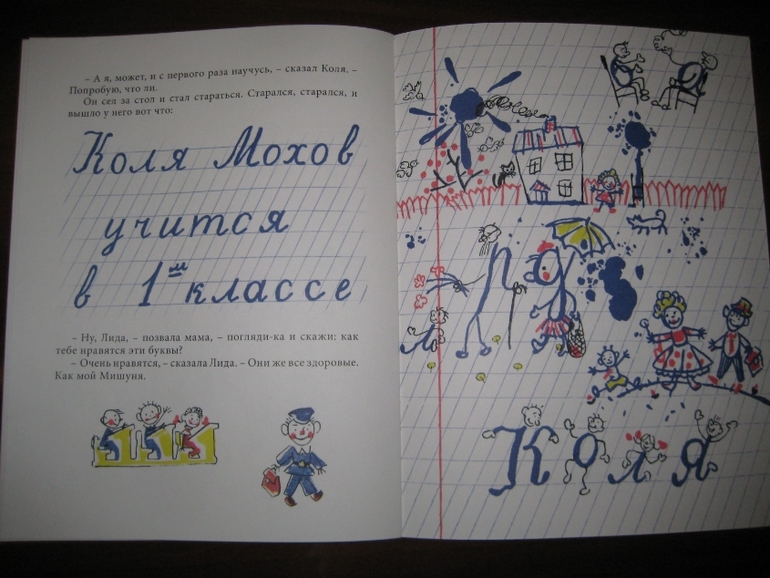 – А я, может, и с первого раза научусь, – сказал Коля. –
Попробую, что ли.
Он сел за стол и стал стараться. Старался, старался, и
вышло у него вот что:
Коля Мохов
учится
в 1ш классе
– Ну, Лида, – позвала мама, – погляди-ка и скажи: как
тебе нравятся эти буквы?
– Очень нравятся, – сказала Лида. – Они же все здоровые.
Как мой Мишуня.
Коля